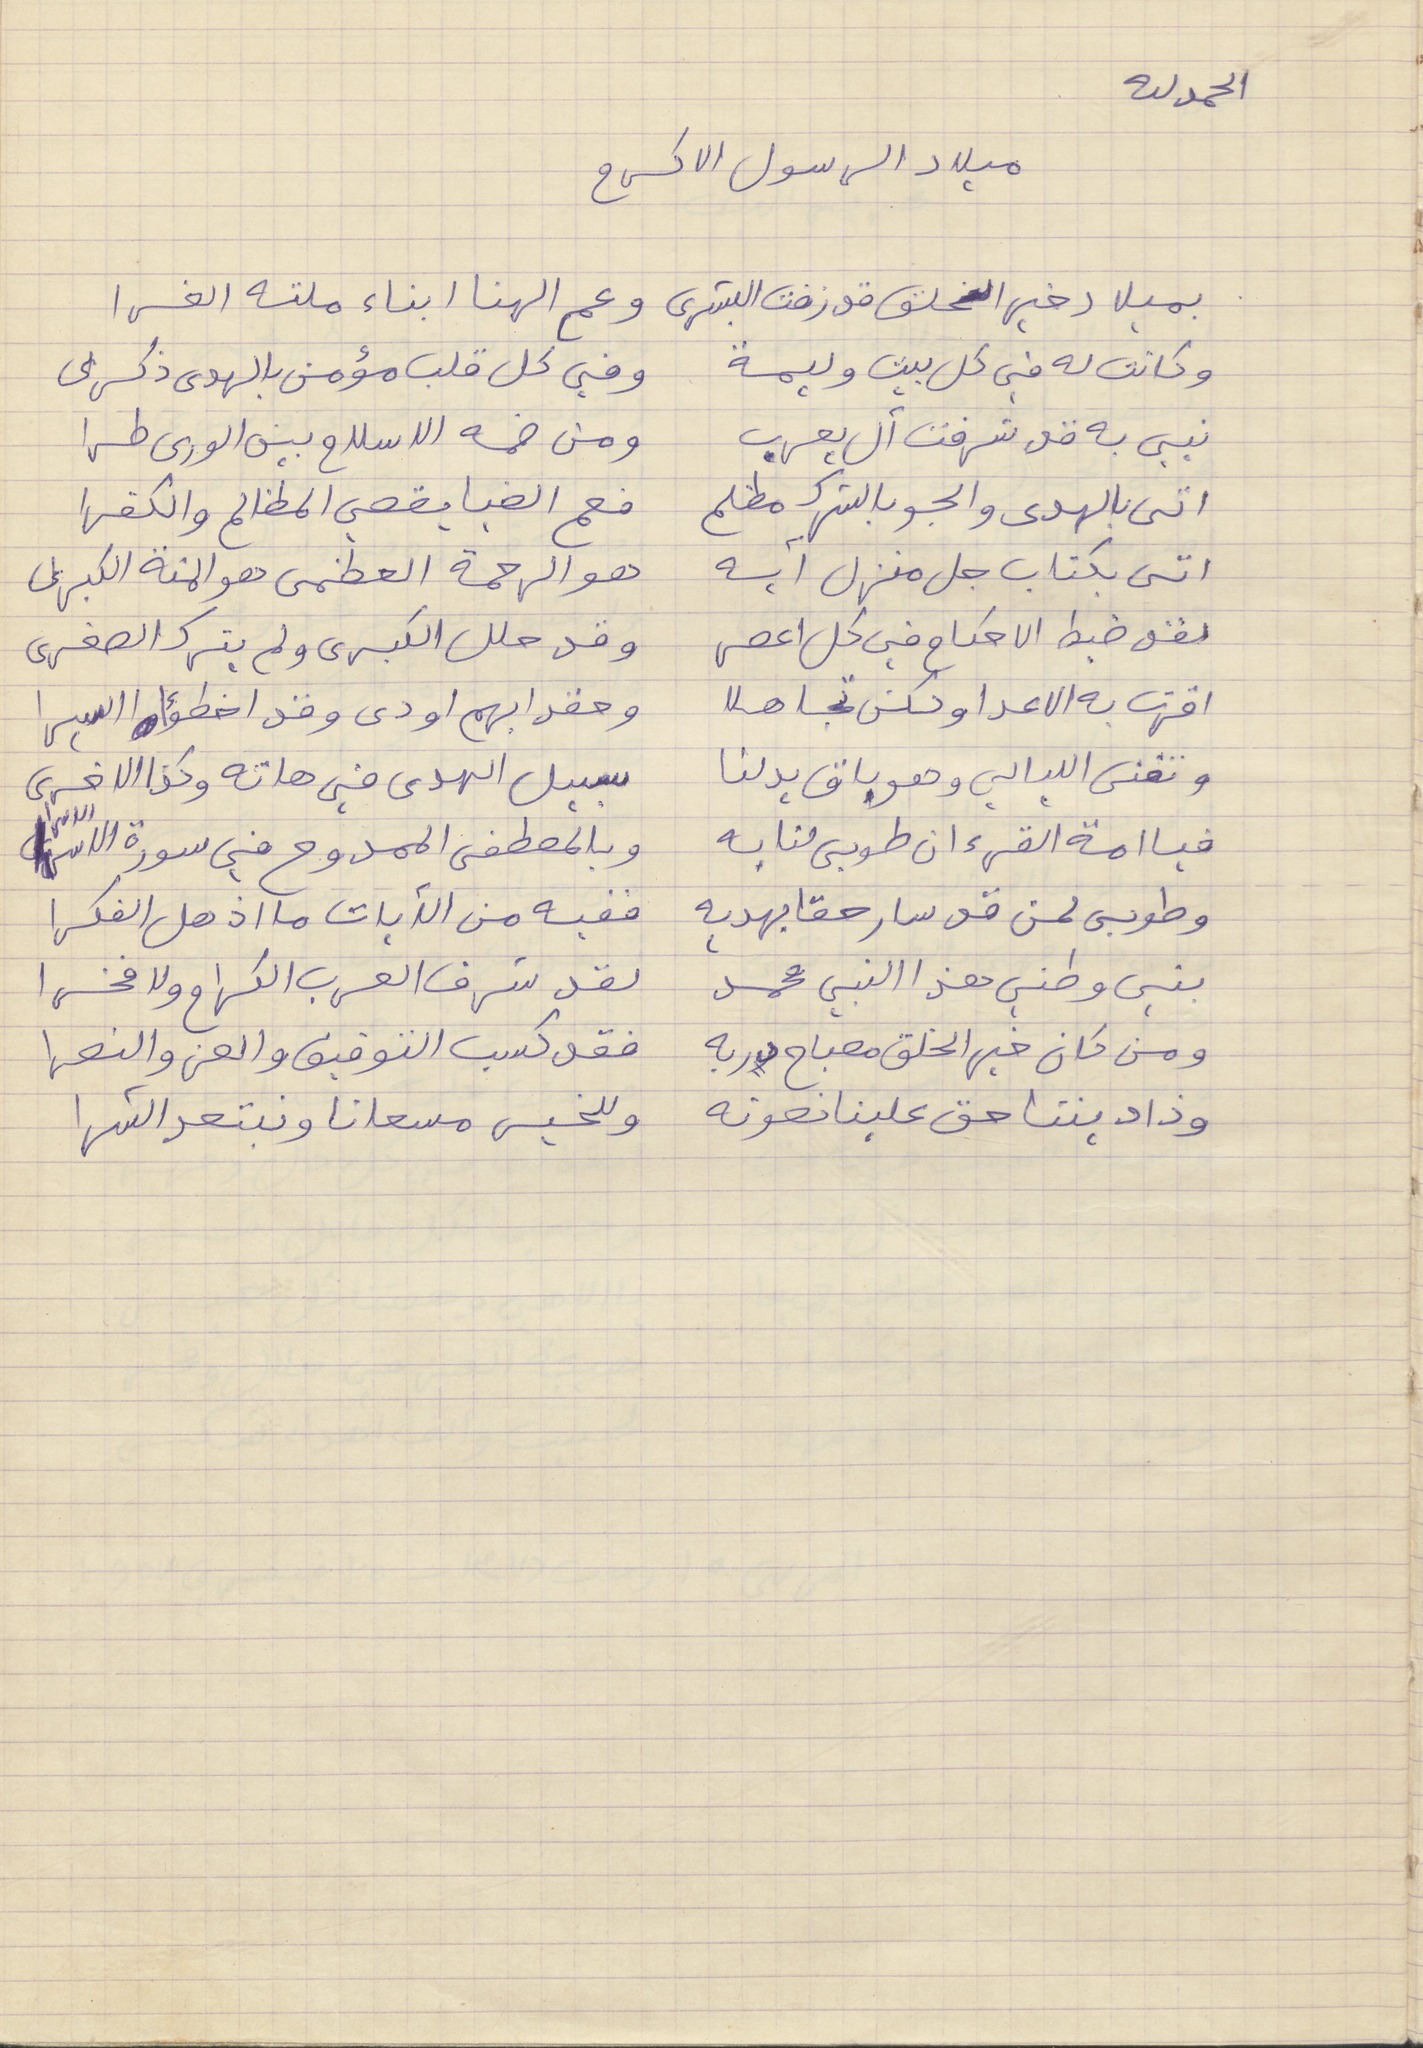 الحمد لله
ميلاد الرسول الاكرم
بميلاد خير الخلق قد زفت البشرى وعم الهنا ابناء ملته الغرا
وكانت له في كل بيت وليمة وفي كل قلب مؤمن بالهدى ذكرى
نبي به قد شرفت آل يعرب ومن ضمه الاسلام بين الورى طرا
اتى بالهدى والجو بالشرك مظلم فعم الضيا يقصي المظالم والكفرا
اتى بكتاب جل منزل آيه هو الرحمة العظمى هو المنة الكبرى
لقد ضبط الاحكام في كل اعصر وقد حلل الكبرى ولم يترك الصغرى
اقرت به الاعدا ولكن تجاهلا وحقدا بهم اودى وقد اخطؤا السيرا
وتفنى الليالي وهو باق يدلنا سبيل الهدى في هاته وكذا الاخرى
فيا امة القرءان طوبى لنا به وبالمصطفى الممدوح في سورة الاسرا
وطوبى لمن قد سار حقا بهديه ففيه من الآيات ما اذهل الفكرا
بني وطني هذا النبي محمد لقد شرف العرب الكرام ولا فخرا
ومن كان خير الخلق مصباح دربه فقد كسب التوفيق والعز والنصرا
وذا ديننا حق علينا نصونه وللخير مسعانا ونبتعد الشرا